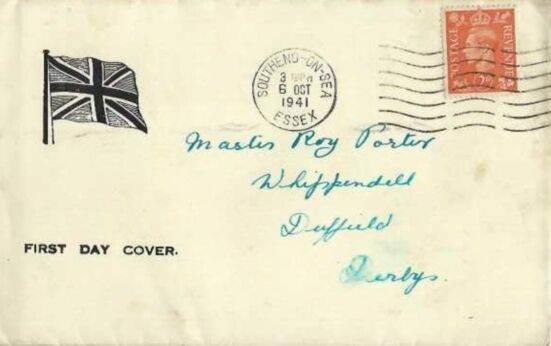 POSTAGE REVENUE
2D
SOUTHEND-ON-SEA
3 PM
6 OCT
1941
ESSEX
Master Roy Porter
Whippendell
Duffield
Derbys.
FIRST DAY COVER.